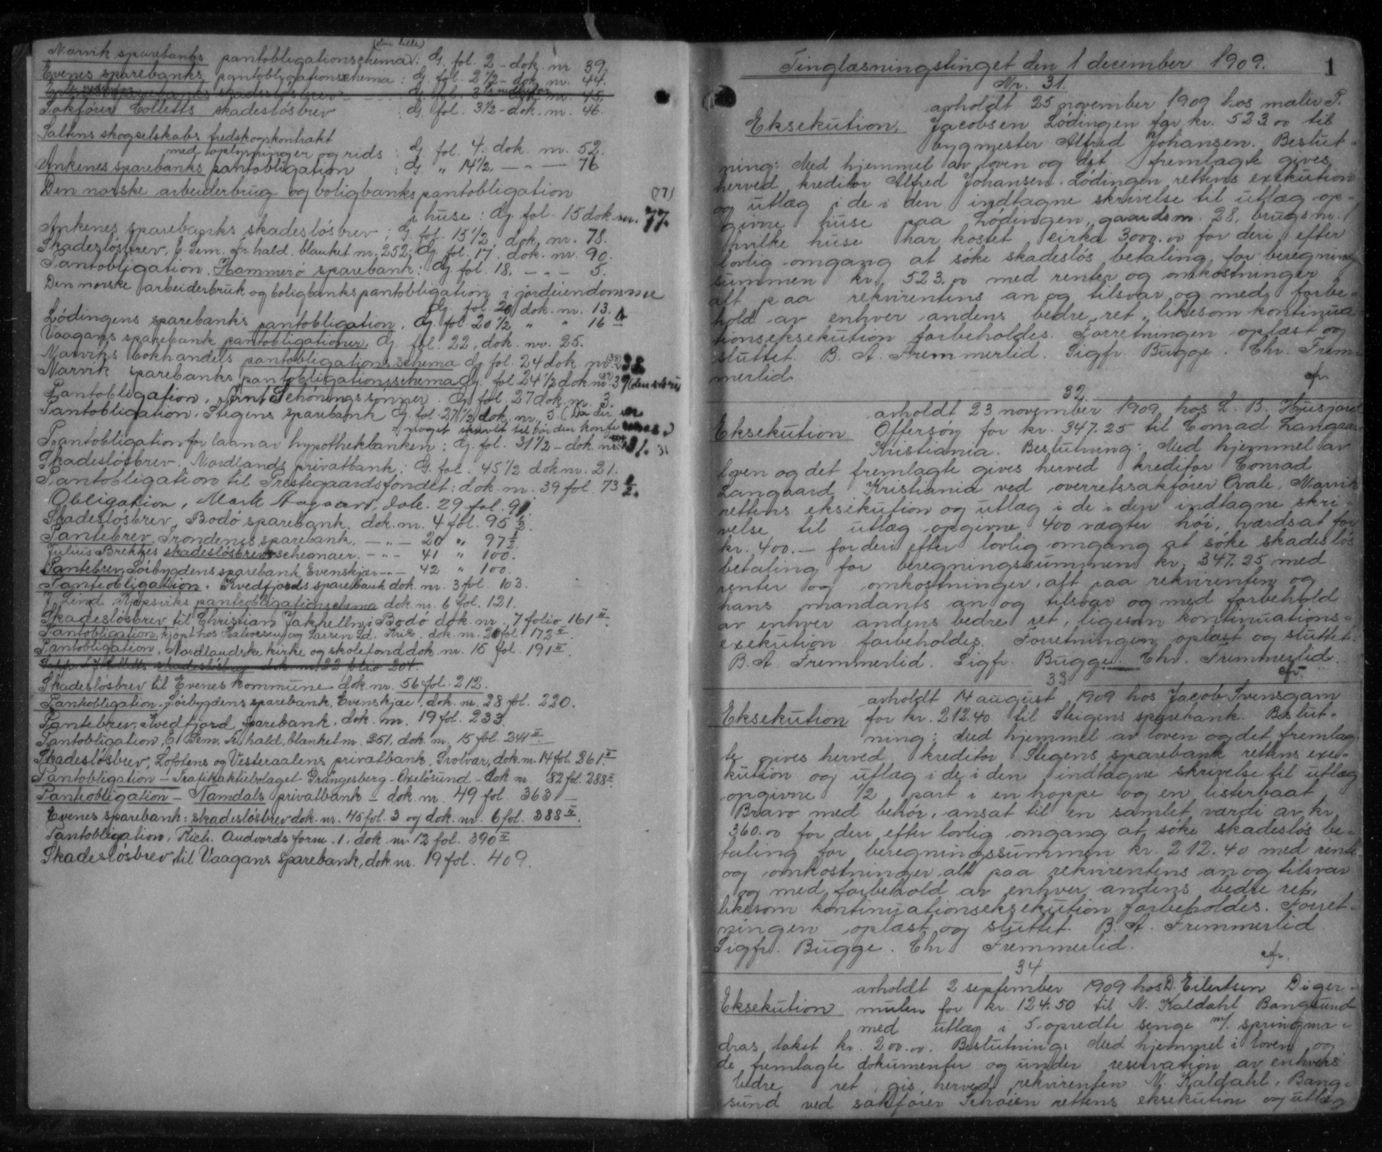 (den lille)
Narvik sparebanks pantobligationschema: G. fol. 2 - dok. nr. 39.
Evenes sparebanks pantobligationschema: G. fol. 2½ - dok. nr. 44.
sparebanks skadesløsbrev dok. nr. 45.
Sakfører Colletts skadesløsbrev : G. fol. 3½ - dok. nr. 46.
Saltens skogselskabs fredskogkontrakt
og rids : G fol. 4. dok. nr. 52.
Ankenes sparebanks pantobligation : G " 14½ — — 76
Den norske arbeiderbrug og boligbanks pantobligation (77)
i huse : G. fol. 15 dok nr. 77.
Ankenes sparebanks skadesløsbrev : G. fol. 15½ dok. nr. 78.
Skadesløsbrev, E. Sem, Fr.hald. blanket nr. 252, G. fol. 17. dok. nr. 90.
Pantobligation. Hammerø sparebank: G fol 18. - - - 5.
Den norske arbeiderbruk og boligbanks pantobligation i jordeiendomme
G. fol. 20 dok. nr. 13.
Lødingens sparebanks pantobligation. G. fol 20½ " " 16
Vaagans sparebank pantobligationer, G. fol. 22, dok. nr. 25.
Narviks bokhandels pantobligationsschema G fol. 24 dok nr. 32
Narvik sparebanks pantobligationsschema G. fol 24½ dok nr. 39 (den store
Pantobligation, Arnt Schönings sønner. G. fol. 27 dok nr. 3.
Pantobligation. Stegens sparebank G fol. 27½ dok. nr. 5. (Da der er
noget
Pantobligation for laan av hypothekbanken: G. fol. 31½ - dok nr. 31. 31
Skadesløsbrev. Nordlands privatbank: G. fol. 45½ dok nr. 21.
Pantobligation til Prestegaardsfondet: dok. nr. 39 fol. 73
Obligation, Marte Aagaard, dok. 29 fol. 91
Skadesløsbrev, Bodø sparebank, dok. nr. 4 fol. 95
Pantebrev Trondenes sparebank. — — 20 " 97
Julius Brekkes skadesløsbrev — — 41 " 100.
Pantebrev Løibygdens sparebank Evenskjær — — 42 " 100.
Pantobligation. Kvedfjords sparebank dok. nr. 3 fol. 103.
pantobligationschema dok nr. 6 fol. 121.
Skadesløsbrev til Christian Jakhelln, Bodø dok nr. 7 folio 161
Pantobligation, kjøpt hos Halvorsen og Larsen Ld. Kra. dok. nr. 20 fol. 173
Pantobligation, Nordlandske kirke og skolefond dok nr. 15 fol. 191
skadesløsbrev dok. nr. 22 folio 204.
Skadesløsbrev til Evenes kommune dok. nr. 56 fol. 212.
Pantobligation, Lørbygdens sparebank, Evenskjær, dok. nr. 28 fol. 220.
Pantebrev, Kvedfjord sparebank. dok. nr. 19 fol. 233
Pantobligation, E. Sem, Fr.hald, blanket nr. 251. dok nr. 15 fol. 244
Skadesløsbrev, Lofotens og Vesteraalens privatbank, Svolvær, dok nr 14 fol. 261
Pantobligation — Trafikaktiebolaget Grängesberg - Oxelösund — dok nr 32 fol. 288
Pantobligation — Namdals privatbank — dok. nr. 49 fol. 363
Evenes sparebank: skadesløsbrev dok. nr. 45 fol. 3 og dok. nr. 6 fol. 388
Pantobligation. Rich. Andvords form. 1. dok nr. 12 fol. 390
Skadesløsbrev til Vaagans Sparebank, dok nr. 19 fol. 409.
Tinglæsningstinget den 1 december 1909. 1
Nr. 31.
avholdt 25 november 1909 hos maler P.
Eksekution Jacobsen Lødingen for kr. 523.00 til
bygmester Alfred Johansen. Beslut-
ning: Med hjemmel av loven og det fremlagte gives
herved kreditor Alfred Johansen. Lødingen rettens exekution
og utlæg i de i den indtagne skrivelse til utlæg op-
givne huse paa Lødingen, gaards nr. 28, bruks nr. 1
hvilke huse har kostet cirka 3000.00 for deri efter
lovlig omgang at søke skadesløs betaling, for beregning
summen kr. 523.00 med renter og omkostninger
alt paa rekvirentens an og tilsvar og med forbe-
hold av enhver andens bedre ret, likesom kontinua-
tionseksekution forbeholdes. Forretningen oplæst og
sluttet. B. A. Fremmerlid. Sigfr. Bugge. Chr. Frem-
merlid.
32.
avholdt 23 november 1909 hos L. B. Husjord
Eksekution Offersøy for kr. 347.25 til Conrad Langaard
Kristiania. Beslutning: Med hjemmel av
loven og det fremlagte gives herved kreditor Conrad
Langaard, Kristiania ved overretssakfører Qvale, Narvik
rettens eksekution og utlæg i de i den indtagne skri-
velse til utlæg opgivne 400 vægter høi, værdsat for
kr. 400.— for deri efter lovlig omgang at søke skadesløs
betaling for beregningssummen kr. 347.25, med
renter og omkostninger, alt paa rekvirentens og
hans mandants an og tilsvar og med forbehold
av enhver andens bedre ret, ligesom kontinuations-
exekution forbeholdes. Forretningen oplæst og sluttet.
B. A. Fremmerlid. Sigfr. Bugge. Chr. Fremmerlid.
33
avholdt 14 august 1909 hos Jacob Svensgam
Eksekution for kr. 212.40 til Stegens sparebank. Beslut-
ning: Med hjemmel av loven og det fremlag-
te gives herved kreditor Stegens sparebank rettens exe-
kution og utlæg i de i den indtagne skrivelse til utlæg
opgivne ½ part i en hoppe og en listerbaat
Bravo med behør, ansat til en samlet værdi av kr.
360.00 for deri efter lovlig omgang at søke skadesløs be-
taling for beregningssummen kr. 212.40 med rente
og omkostninger, alt paa rekvirentens an og tilsvar
og med forbehold av enhver andens bedre ret,
likesom kontinuationseksekution forbeholdes. Forret-
ningen oplæst og sluttet. B. A. Fremmerlid
Sigfr. Bugge. Chr Fremmerlid.
34
avholdt 2 september 1909 hos D. Eilertsen Diger-
Eksekution mulen for kr. 124.50 til N. Kaldahl Bangsund
med utlæg i 5 opredte senge m/ springma-
dras, takst kr. 200.00. Beslutning: Med hjemmel i loven og
de fremlagte dokumenter og under reservation av enhvers
bedre ret gis herved rekvirenten N. Kaldahl, Bang-
sund ved sakfører Schøien rettens eksekution og utlæg